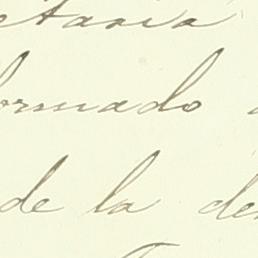 etaria
formado
de la de